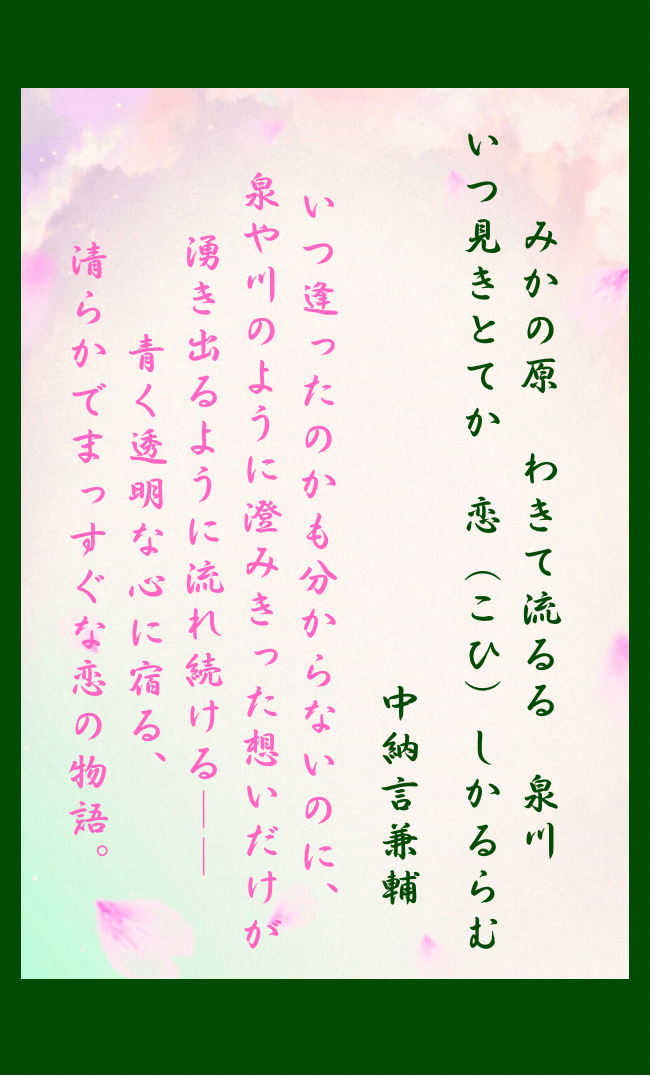 みかの原　わきて流るる　泉川
いつ見きとてか　恋（こひ）しかるらむ
中納言兼輔
いつ逢ったのかも分からないのに、
泉や川のように澄みきった想いだけが
湧き出るように流れ続ける――
青く透明な心に宿る、
清らかでまっすぐな恋の物語。